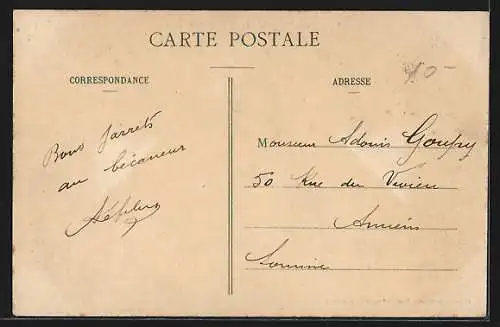 CARTE POSTALE
CORRESPONDANCE
ADRESSE
10-
Bons jarrets
au bécaneur
Monsieur Adonis Goupy
50 Rue du Vivier
Amiens
Somme